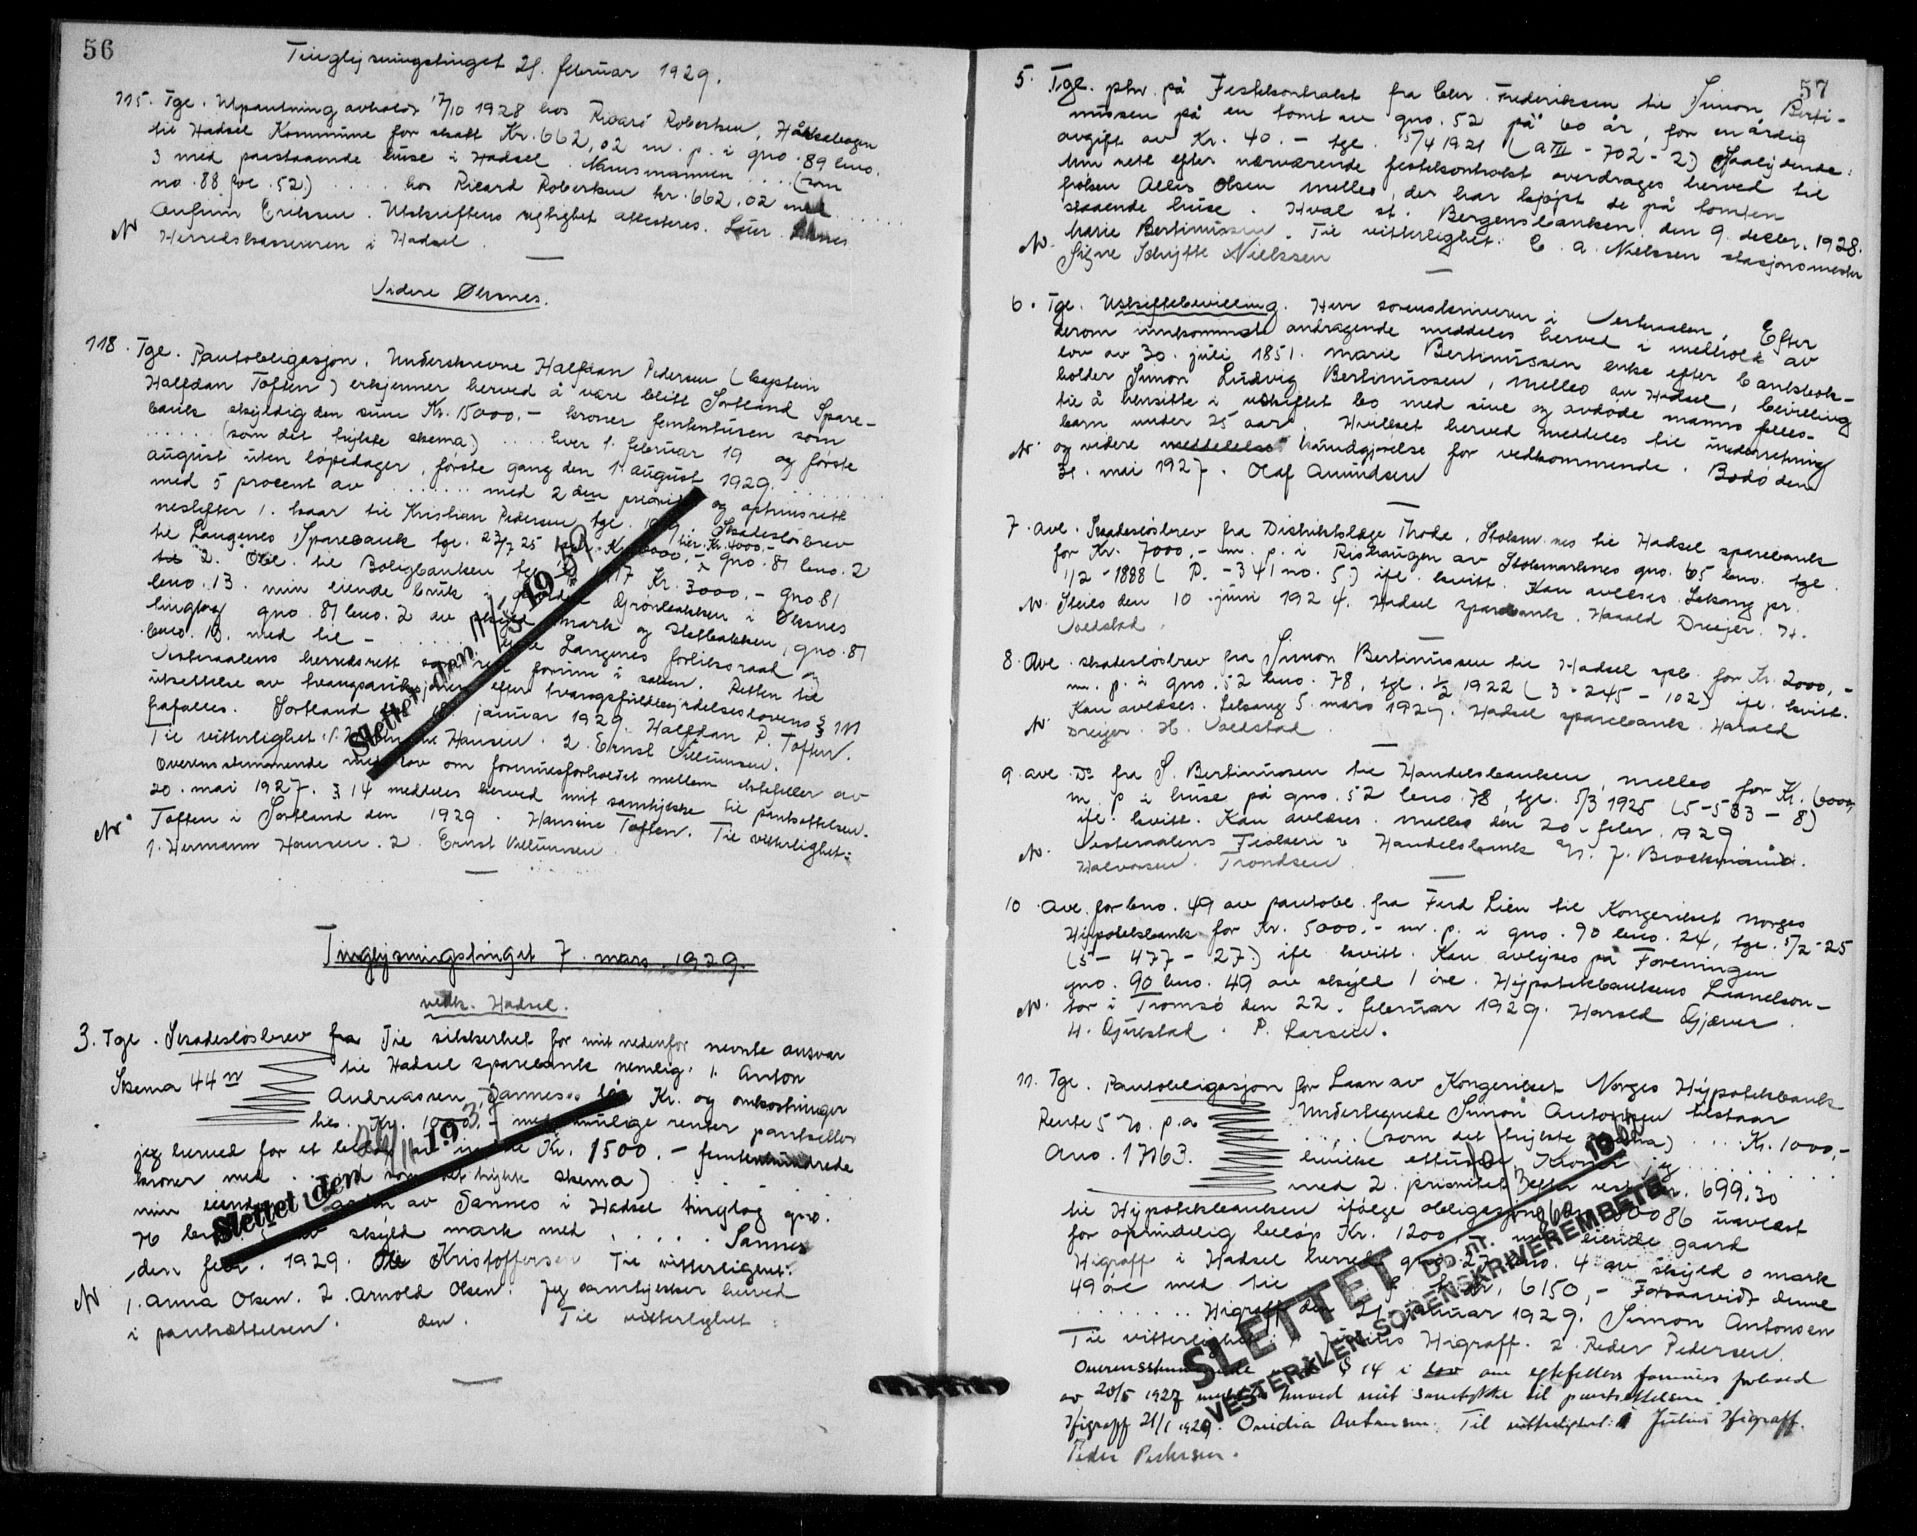 56
Tinglysningstinget 21. februar 1929.
115. Tgl. Utpantning avholdt 17/10 1928 hos Ricard Robertsen,
til Hadsel Kommune for skatt Kr. 662,02 m. p. i gno. 89 bno.
3 med paastaaende huse i Hadsel. Namsmannen .... (som
no. 88 fol. 52) ..... hos Ricard Robertsen kr. 662,02 med ......
Anfinn Eriksen. Utskriftens rigtighet attesteres.
N Herredskassereren i Hadsel.
Videre Øksnes.
118. Tgl. Pantobligasjon. Underskrevne Halfdan Pedersen (Captein
Halfdan Toften) erkjenner herved å være blitt Sortland Spare-
bank skyldig den sum Kr. 15000,- kroner femtentusen som
...... (som det trykte skema) .... hver 1. februar 19 og første
august uten løpedager, første gang den 1. august 1929. ........
med 5 procent av ........ med 2den prioritet og optrinsrett
nestefter 1. kaar til Kristian Pedersen tgl. Skadesløsbrev
til Langenes Sparebank tgl. 23/7 25 Kr. 4000,- gno. 81 bno. 2
2. Obl. til Boligbanken tgl. 17 Kr. 3000,- gno 81
bno. 13. min eiende bruk i Grønbakken i Øksnes
tinglag gno. 81 bno. 2 av skyld mark og Slettbakken, gno. 81
bno. 13. med til - ........ Langenes forliksraad og
Vesteraalens herredsrett som rett forum i saken. Retten til
utsettelse av tvangsauksjonen efter tvangsfuldbyrdelseslovens §
frafalles. Sortland januar 1929. Halfdan P. Toften.
Til vitterlighet: 1. Hansen. 2. Ernst Villumsen.
Overensstemmende med lov om formuesforholdet mellem ektefeller av
20. mai 1927. § 14 meddeles herved mit samtykke til pantsettelsen.
N Toften i Sortland den 1929. Hansine Toften. Til vitterlighet:
1. Hermann Hansen. 2. Ernst Villumsen.
Slettet den 11/5 19
Tinglysningstinget 7. mars 1929.
vedk. Hadsel.
3. Tgl. Skadesløsbrev fra Til sikkerhet for mit nedenfor nevnte ansvar
Skema 44 til Hadsel sparebank nemlig: 1. Anton
Andreassen, Sannes. Kr. og omkostninger
Kr. 1000,- med mulige renter pantsetter
jeg herved for et beløp av intil Kr. 1500,- femtenhundrede
kroner med .... som det trykte skema)
min eiende av Sannes i Hadsel tinglag gno.
76 bno. av skyld mark med ..... Sannes
den febr. 1929. Ole Kristoffersen Til vitterlighet:
N 1. Anna Olsen. 2. Arnold Olsen. Jeg samtykker herved
i pantsættelsen. den. Til vitterlighet:
Slettet den 193
57
5. Tgl. på Festekontrakt fra Chr. Frederiksen til Simon Berti-
nussen på en tomt av gno. 52 på 60 år, for en årlig
avgift av Kr. 40.- tgl. 15/4 1921 (A III - 702 - 2) saalydende:
Min rett efter nærværende festekontrakt overdrages herved til
frøken Allis Olsen Melbo, der har kjøpt de på tomten
staaende huse. Hval st. Bergensbanen den 9. decbr. 1928.
N. Marie Bertinussen. Til vitterlighet: E. A. Nielssen stasjonsmester
Signe Schytte Nielssen
6. Tgl. Uskiftebevilling. Herr sorenskriveren i Vesteraalen. Efter
derom innkommet andragende meddeles herved i medhold av
lov av 30. juli 1851. Marie Bertinussen enke efter bankbok-
holder Simon Ludvig Bertinussen, Melbo av Hadsel, bevilling
til å hensitte i uskiftet bo med sine og avdøde manns felles-
barn under 25 aar. Hvilket herved meddeles til underretning
N og videre meddelelse kundgjørelse for vedkommende. Bodø den
31. mai 1927. Olaf Amundsen
7. Avl. Skadesløsbrev fra Distriktslæge Thode, Stokmarknes til Hadsel sparebank
for Kr. 7000,- m. p. i Rishaugen av Stokmarknes gno. 65 bno. tgl.
1/2 - 1888 (P. - 341 no. 5) ifl. kvitt. Kan avlæses. Lekang pr.
N. Steilo den 10. juni 1924. Hadsel sparebank. Harald Dreyer. H.
Voldstad.
8. Avl. skadesløsbrev fra Simon Bertinussen til Hadsel spb. for Kr. 2000,-
m. p. i gno. 52 bno. 78, tgl. 1/2 1922 (3 - 245 - 102) ifl. kvitt.
Kan avlæses. Lekang 5. mars 1927. Hadsel sparebank. Harald
N Dreyer. H. Voldstad.
9. Avl. Do fra S. Bertinussen til Handelsbanken, Melbo for Kr. 6000,-
m. p. i huse på gno. 52 bno. 78, tgl. 5/3 1925 (5 - 533 - 8)
ifl. kvitt. Kan avlæses. Melbo den 20. febr. 1929
N. Vesteraalens Fiskeri & Handelsbank A/S. J. Brockmann.
Halvorsen. Trondsen.
10. Avl. for bno. 49 av pantobl. fra Ferd Lien til Kongeriket Norges
Hypotekbank for Kr. 5000,- m. p. i gno. 90 bno. 24, tgl. 5/2 - 25
(5 - 477 - 27) ifl. kvitt. Kan avlyses på Foreningen
gno. 90 bno. 49 av skyld 1 øre. Hypotekbankens Laanekon-
N. tor i Tromsø den 22. februar 1929. Harald Gjæver.
H. Gjulstad. P. Larsen.
11. Tgl. Pantobligasjon for Laan av Kongeriket Norges Hypotekbank
Rente 5 % p.a Undertegnede Simon Antonsen tilstaar
Ano. 17163. .... (som det trykte skema) .... Kr. 1000,-
hvilke ettusen Kroner jeg .......
med 2. prioritet efter rest kr. 699,30
til Hypotekbanken ifølge obligasjon 0086 uavløst
for oprindelig beløp Kr. 1200, min eiende gaard
Higraff i Hadsel herred gno. 27 bno. 4 av skyld 0 mark
49 øre med til Kr. 6150,- Forsaavidt denne
........ Higraff den 21. januar 1929. Simon Antonsen
Til vitterlighet: 1. Julius Higraff. 2. Peder Pedersen.
Overensstemmende § 14 i lov om ektefellers formues forhold
av 20/5 1927 meddeles herved mit samtykke til pantsettelsen.
Higraff 21/1 1929. Ovidia Antonsen. Til vitterlighet: 1 Julius Higraff.
Peder Pedersen.
SLETTET Db. nr. 19
VESTERÅLEN SORENSKRIVEREMBETE